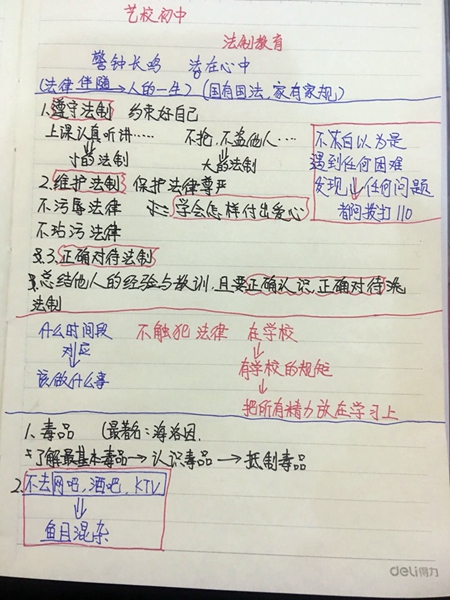 艺校初中
法制教育
警钟长鸣 法在心中
(法律伴随→人的一生) (国有国法,家有家规)
1.遵守法制 约束好自己
上课认真听讲…… 不抢,不盗他人…
↓ ↓
小的法制 大的法制
不茉自以为是
遇到任何困难
发现↓任何问题
都可拨打110
2.维护法制 保护法律尊严
不污辱法律 学会怎样付出爱心
不玷污法律
3.正确对待法制
总结他人的经验与教训,且要正确认识,正确对待
法制
什么时间段 不触犯法律 在学校
对应 ↓
↓ 有学校的规矩
该做什么事 ↓
把所有精力放在学习上
1、毒品 (最著名:海洛因.
了解最基本毒品→认识毒品→抵制毒品
2.不去网吧,酒吧,KTV
↓
鱼目混杂
deli得力